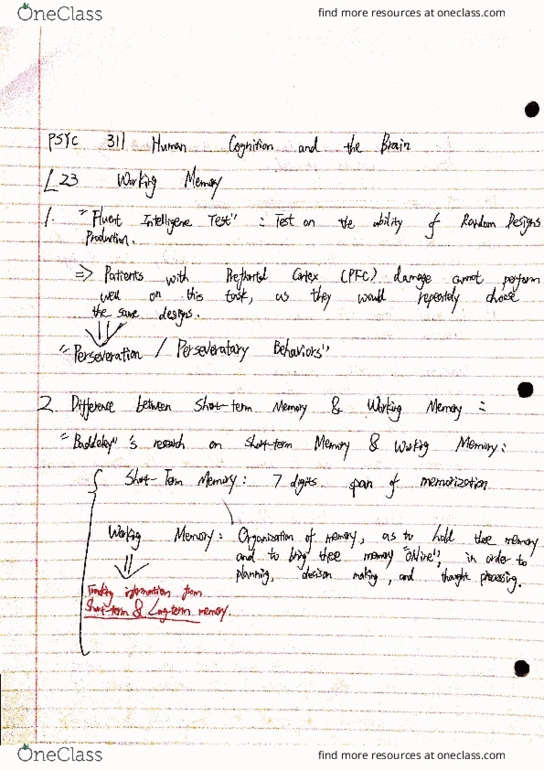 OneClass
find more resources at oneclass.com
PSYC 311 Human Cognition and the Brain
L23 Working Memory
1. "Fluent Intelligene Test" : Test on the ability of Random Designs
Production.
=> Patients with Prefrontal Cortex (PFC) damage cannot perform
well on this task, as they would repeately choose
the same designs.
"Perseveration / Perseveratary Behaviors"
2. Difference between Short-term Memory & Working Memory :
"Baddeley"'s research on short-term Memory & Working Memory :
Short-Term Memory : 7 digits span of memorization
Working Memory : Organization of memory, as to hold these memory
and to bring these memory "Online", in order to
planning, decision making, and thought processing.
information from
Short-term & Long-term memory.
OneClass
find more resources at oneclass.com